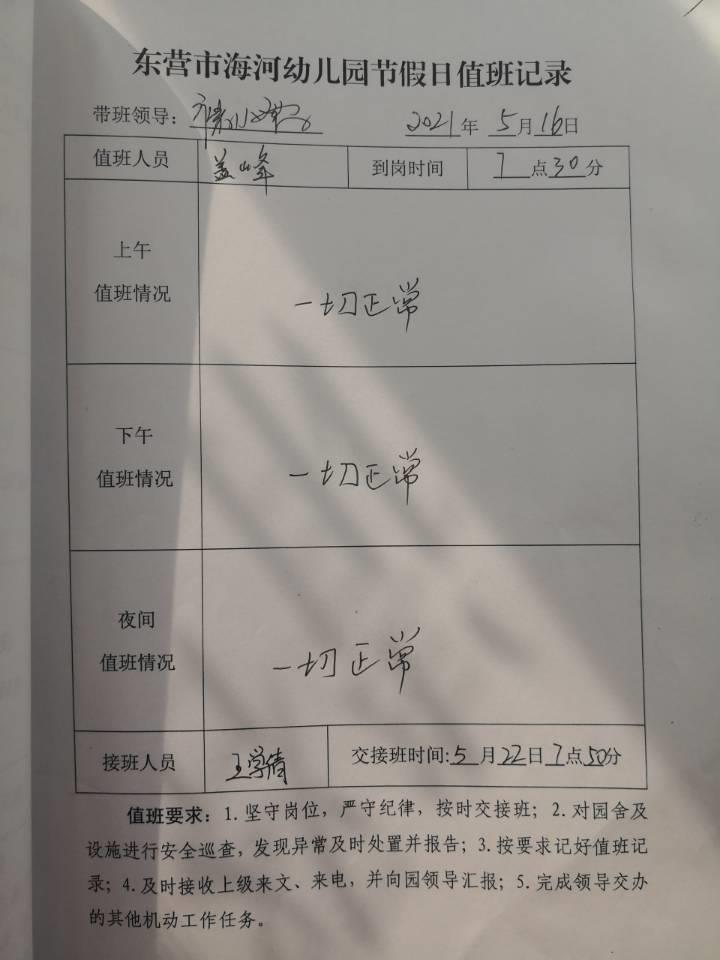 东营市海河幼儿园节假日值班记录
带班领导: 2021年 5月16日
值班人员 盖峰 到岗时间 7点30分
上午
值班情况
一切正常
下午
值班情况
一切正常
夜间
值班情况
一切正常
接班人员 王学倩 交接班时间:5月22日7点50分
值班要求:1.坚守岗位,严守纪律,按时交接班;2.对园舍及
设施进行安全巡查,发现异常及时处置并报告;3.按要求记好值班记
录;4.及时接收上级来文、来电,并向园领导汇报;5.完成领导交办
的其他机动工作任务。